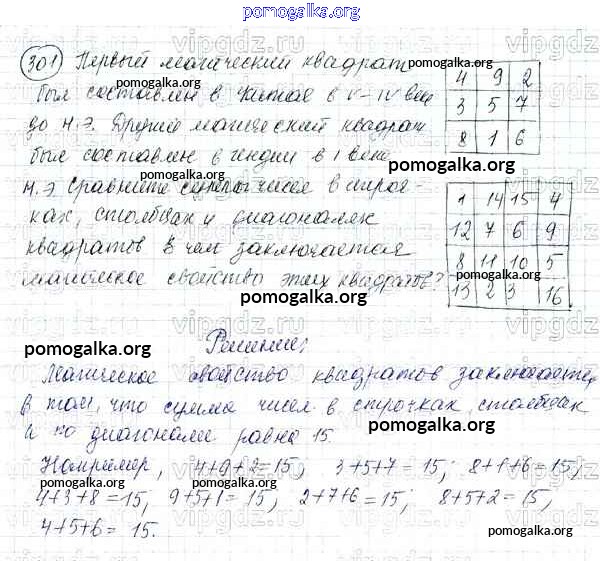 pomogalka.org
301 Первый магический квадрат
pomogalka.org
был составлен в Китае в V-IV веке
до н.э. Другой магический квадрат
был составлен в Индии в I веке
pomogalka.org
н.э. Сравните суммы чисел в строч-
ках, столбцах и диагоналях
квадратов. В чем заключается
магическое свойство этих квадратов?
pomogalka.org
4 9 2
3 5 7
8 1 6
pomogalka.org
1 14 15 4
12 7 6 9
8 11 10 5
13 2 3 16
pomogalka.org
pomogalka.org
Решение:
Магическое свойство квадратов заключается
pomogalka.org
в том, что сумма чисел в строчках, столбцах
и по диагонали равна 15.
pomogalka.org
Например, 4+9+2=15, 3+5+7=15; 8+1+6=15,
pomogalka.org
4+3+8=15; 9+5+1=15; 2+7+6=15; 8+5+2=15,
4+5+6=15.
pomogalka.org
pomogalka.org